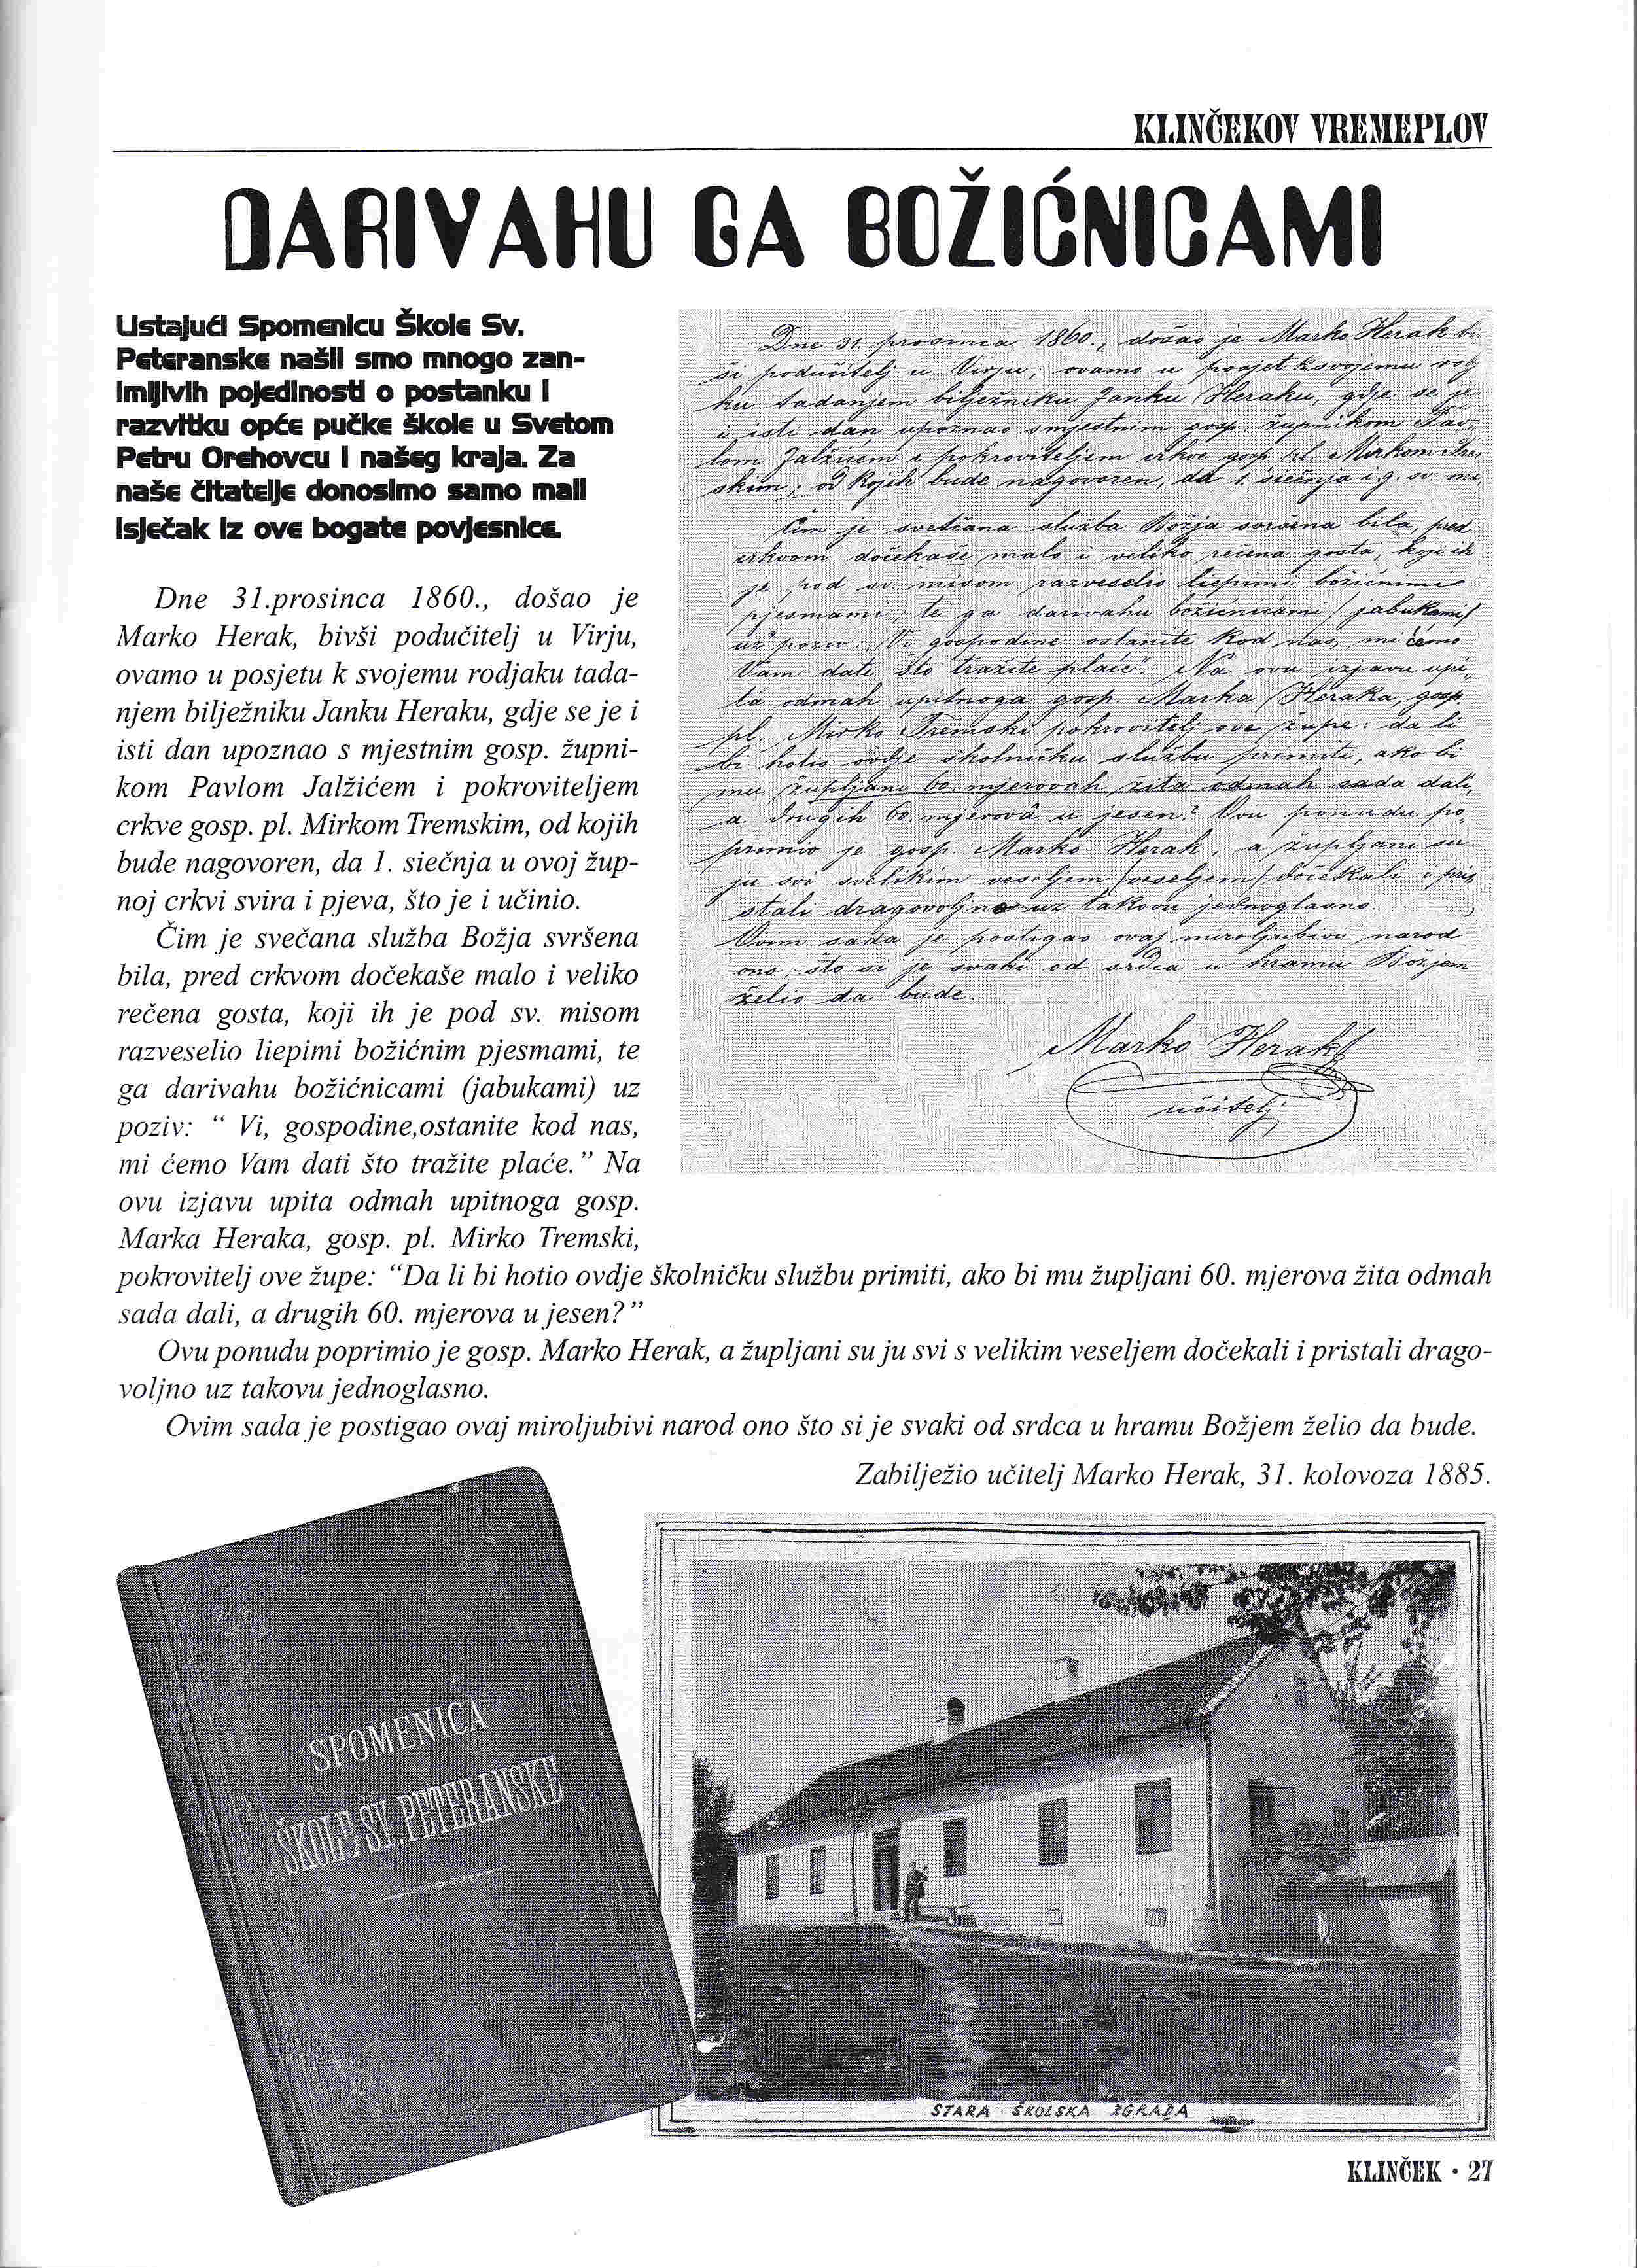 KLINČEKOV VREMEPLOV
DARIVAHU GA BOŽIĆNICAMI
Listajući Spomenicu Škole Sv.
Peteranske našli smo mnogo zan-
imljivih pojedinosti o postanku i
razvitku opće pučke škole u Svetom
Petru Orehovcu i našeg kraja. Za
naše čitatelje donosimo samo mali
isječak iz ove bogate povjesnice.
Dne 31.prosinca 1860., došao je
Marko Herak, bivši podučitelj u Virju,
ovamo u posjetu k svojemu rodjaku tada-
njem bilježniku Janku Heraku, gdje se je i
isti dan upoznao s mjestnim gosp. župni-
kom Pavlom Jalžićem i pokroviteljem
crkve gosp. pl. Mirkom Tremskim, od kojih
bude nagovoren, da 1. siečnja u ovoj žup-
noj crkvi svira i pjeva, što je i učinio.
Čim je svečana služba Božja svršena
bila, pred crkvom dočekaše malo i veliko
rečena gosta, koji ih je pod sv. misom
razveselio liepimi božićnim pjesmami, te
ga darivahu božićnicami (jabukami) uz
poziv: “ Vi, gospodine,ostanite kod nas,
mi ćemo Vam dati što tražite plaće.” Na
ovu izjavu upita odmah upitnoga gosp.
Marka Heraka, gosp. pl. Mirko Tremski,
pokrovitelj ove župe: “Da li bi hotio ovdje školničku službu primiti, ako bi mu župljani 60. mjerova žita odmah
sada dali, a drugih 60. mjerova u jesen?”
Ovu ponudu poprimio je gosp. Marko Herak, a župljani su ju svi s velikim veseljem dočekali i pristali drago-
voljno uz takovu jednoglasno.
Ovim sada je postigao ovaj miroljubivi narod ono što si je svaki od srdca u hramu Božjem želio da bude.
Zabilježio učitelj Marko Herak, 31. kolovoza 1885.
Dne 31. prosinca 1860., došao je Marko Herak bi-
ši podučitelj u Virju, ovamo u posjet k svojemu rodj
ku tadanjem bilježniku Janku Heraku, gdje se je
i isti dan upoznao s mjestnim gosp. župnikom Pav-
lom Jalžićem i pokroviteljem crkve gosp. pl. Mirkom Trem
skim; od kojih bude nagovoren, da 1. siečnja i. g. sv. mi,
Čim je svečana služba Božja svršena bila, pred
crkvom dočekaše malo i veliko rečena gosta, koji ih
je pod sv. misom razveselio liepimi božićnimi
pjesmami, te ga darivahu božićnicami /jabukami/
uz poziv: „Vi gospodine ostanite kod nas, mi ćemo
Vam dati što tražite plaće". Na ovu izjavu upi-
ta odmah upitnoga gosp. Marka Heraka, gosp.
pl. Mirko Tremski pokrovitelj ove župe: da li
bi hotio ovdje školničku službu primiti, ako bi
mu župljani 60. mjerovah žita odmah sada dali,
a drugih 60. mjerovâ u jesen? Ovu ponudu po-
primio je gosp. Marko Herak, a župljani su
ju svi svelikim veseljem /veseljem/ dočekali i pri-
stali dragovoljno uz takovu jednoglasno.
Ovim sada je postigao ovaj miroljubivi narod
ono, što si je svaki od srdca u hramu Božjem
želio da bude.
Marko Herak
učitelj
SPOMENICA
ŠKOLE SV. PETERANSKE
STARA ŠKOLSKA ZGRADA
KLINČEK · 27